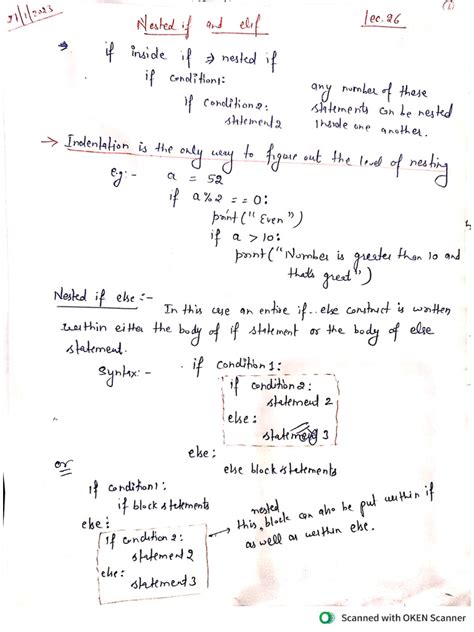 27/1/2023
Nested if and elif
Lec. 26
if inside if ⇒ nested if
if condition1:
if condition2:
statement2
any number of these
statements can be nested
inside one another.
→ Indentation is the only way to figure out the level of nesting
e.g:- a = 52
if a%2 == 0:
print("Even")
if a > 10:
print("Number is greater than 10 and
that's great")
Nested if else :-
In this case an entire if..else construct is written
within either the body of if statement or the body of else
statement.
Syntax:- if condition 1:
if condition 2:
statement 2
else:
statement 3
else:
else block statements
or
if condition1:
if block statements
else:
if condition 2:
statement 2
else:
statement 3
→ this nested block can also be put within if
as well as within else.
Scanned with OKEN Scanner